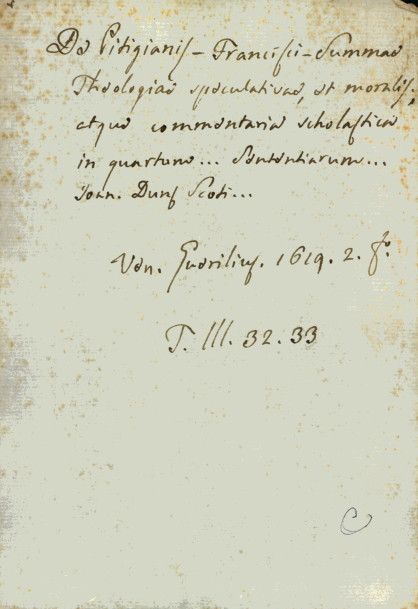 De Pitigianis - Francisci - Summae
Theologiae speculativae, et moralis,
atque commentaria scholastica
in quartum... Sententiarum...
Joan. Duns Scoti...
Ven. Guerilius. 1619. 2. fo.
T. III. 32. 33
C